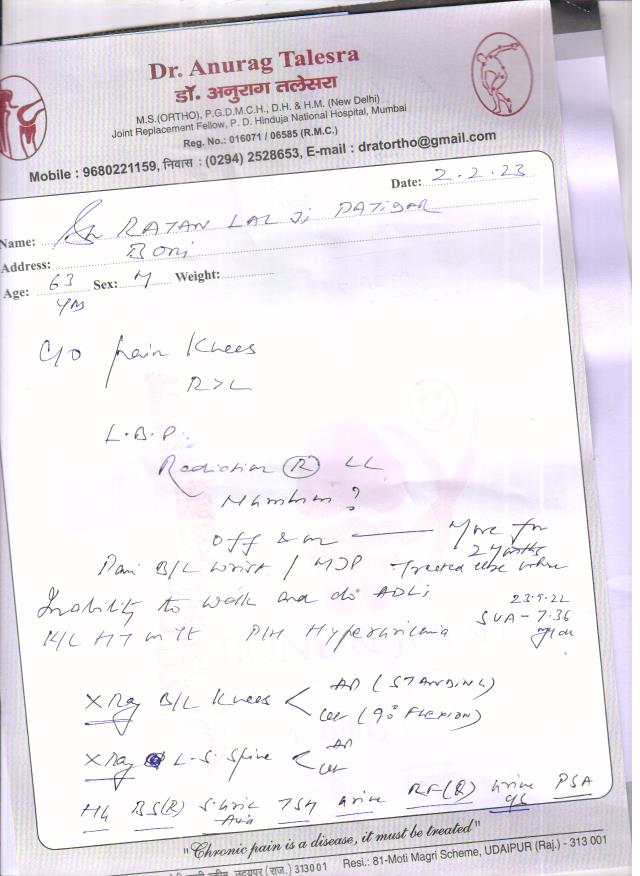 Dr. Anurag Talesra
डॉ. अनुराग तलेसरा
M.S.(ORTHO), P.G.D.M.C.H., D.H. & H.M. (New Delhi)
Joint Replacement Fellow, P. D. Hinduja National Hospital, Mumbai
Reg. No.: 016071 / 06585 (R.M.C.)
Mobile : 9680221159, निवास : (0294) 2528653, E-mail : dratortho@gmail.com
Date: 2.2.23
Name: RATAN LAL JI PATIDAR
Address: BORI
Age: 63 Sex: M Weight:
C/O pain Knees
R>L
L.B.P.
Radiation (R) LL
Numbness ?
Off & on — More for
2 Months
Pain B/L wrist / MJP Treated else where
Inability to walk and do ADLs
23.9.22
K/C HT on Tt P/H Hyperuricemia SUA - 7.36
mg/dl
X Ray B/L Knees < AP (STANDING)
Lat (90 FLEXION)
X Ray L-S Spine < AP
Lat
Hb BS(R) S.Uric TSH Urine RF(Q) Urine PSA
Acid
"Chronic pain is a disease, it must be treated"
उदयपुर (राज.) 313001 Resi.: 81-Moti Magri Scheme, UDAIPUR (Raj.) - 313 001